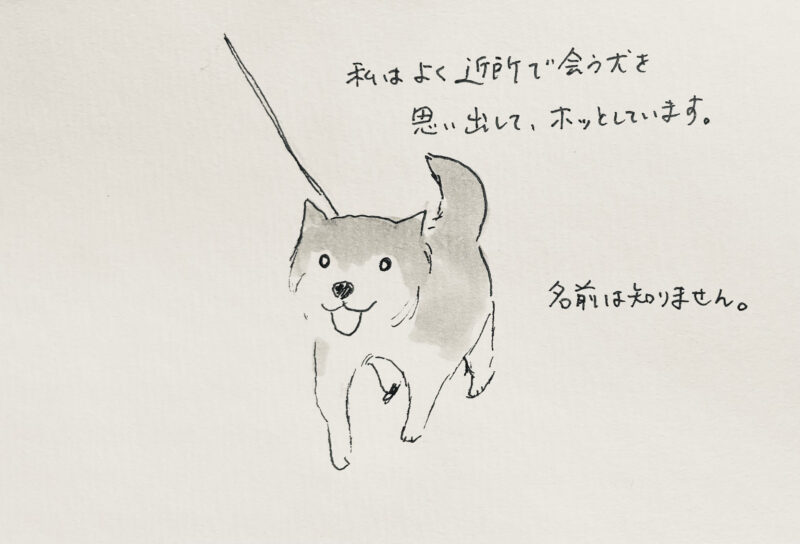 私はよく近所で会う犬を
思い出して、ホッとしています。
名前は知りません。